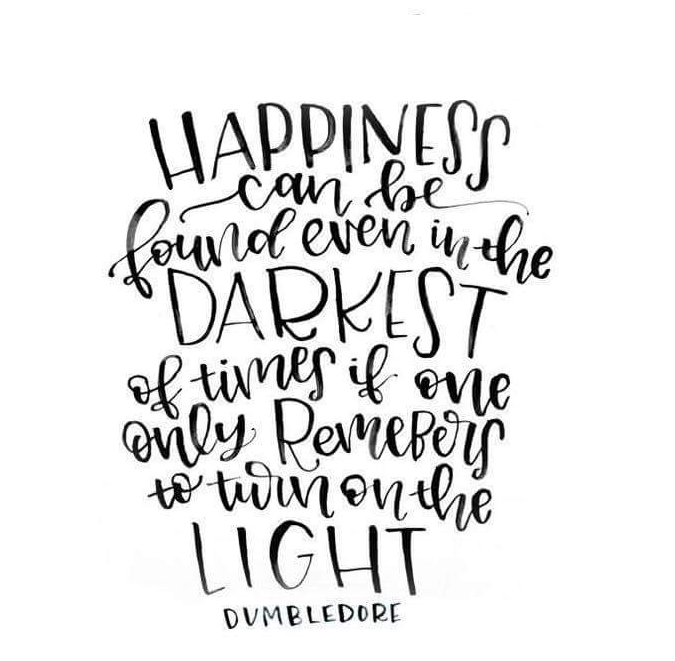 HAPPINESS
can be
found even in the
DARKEST
of times if one
only Remebers
to turn on the
LIGHT
DUMBLEDORE